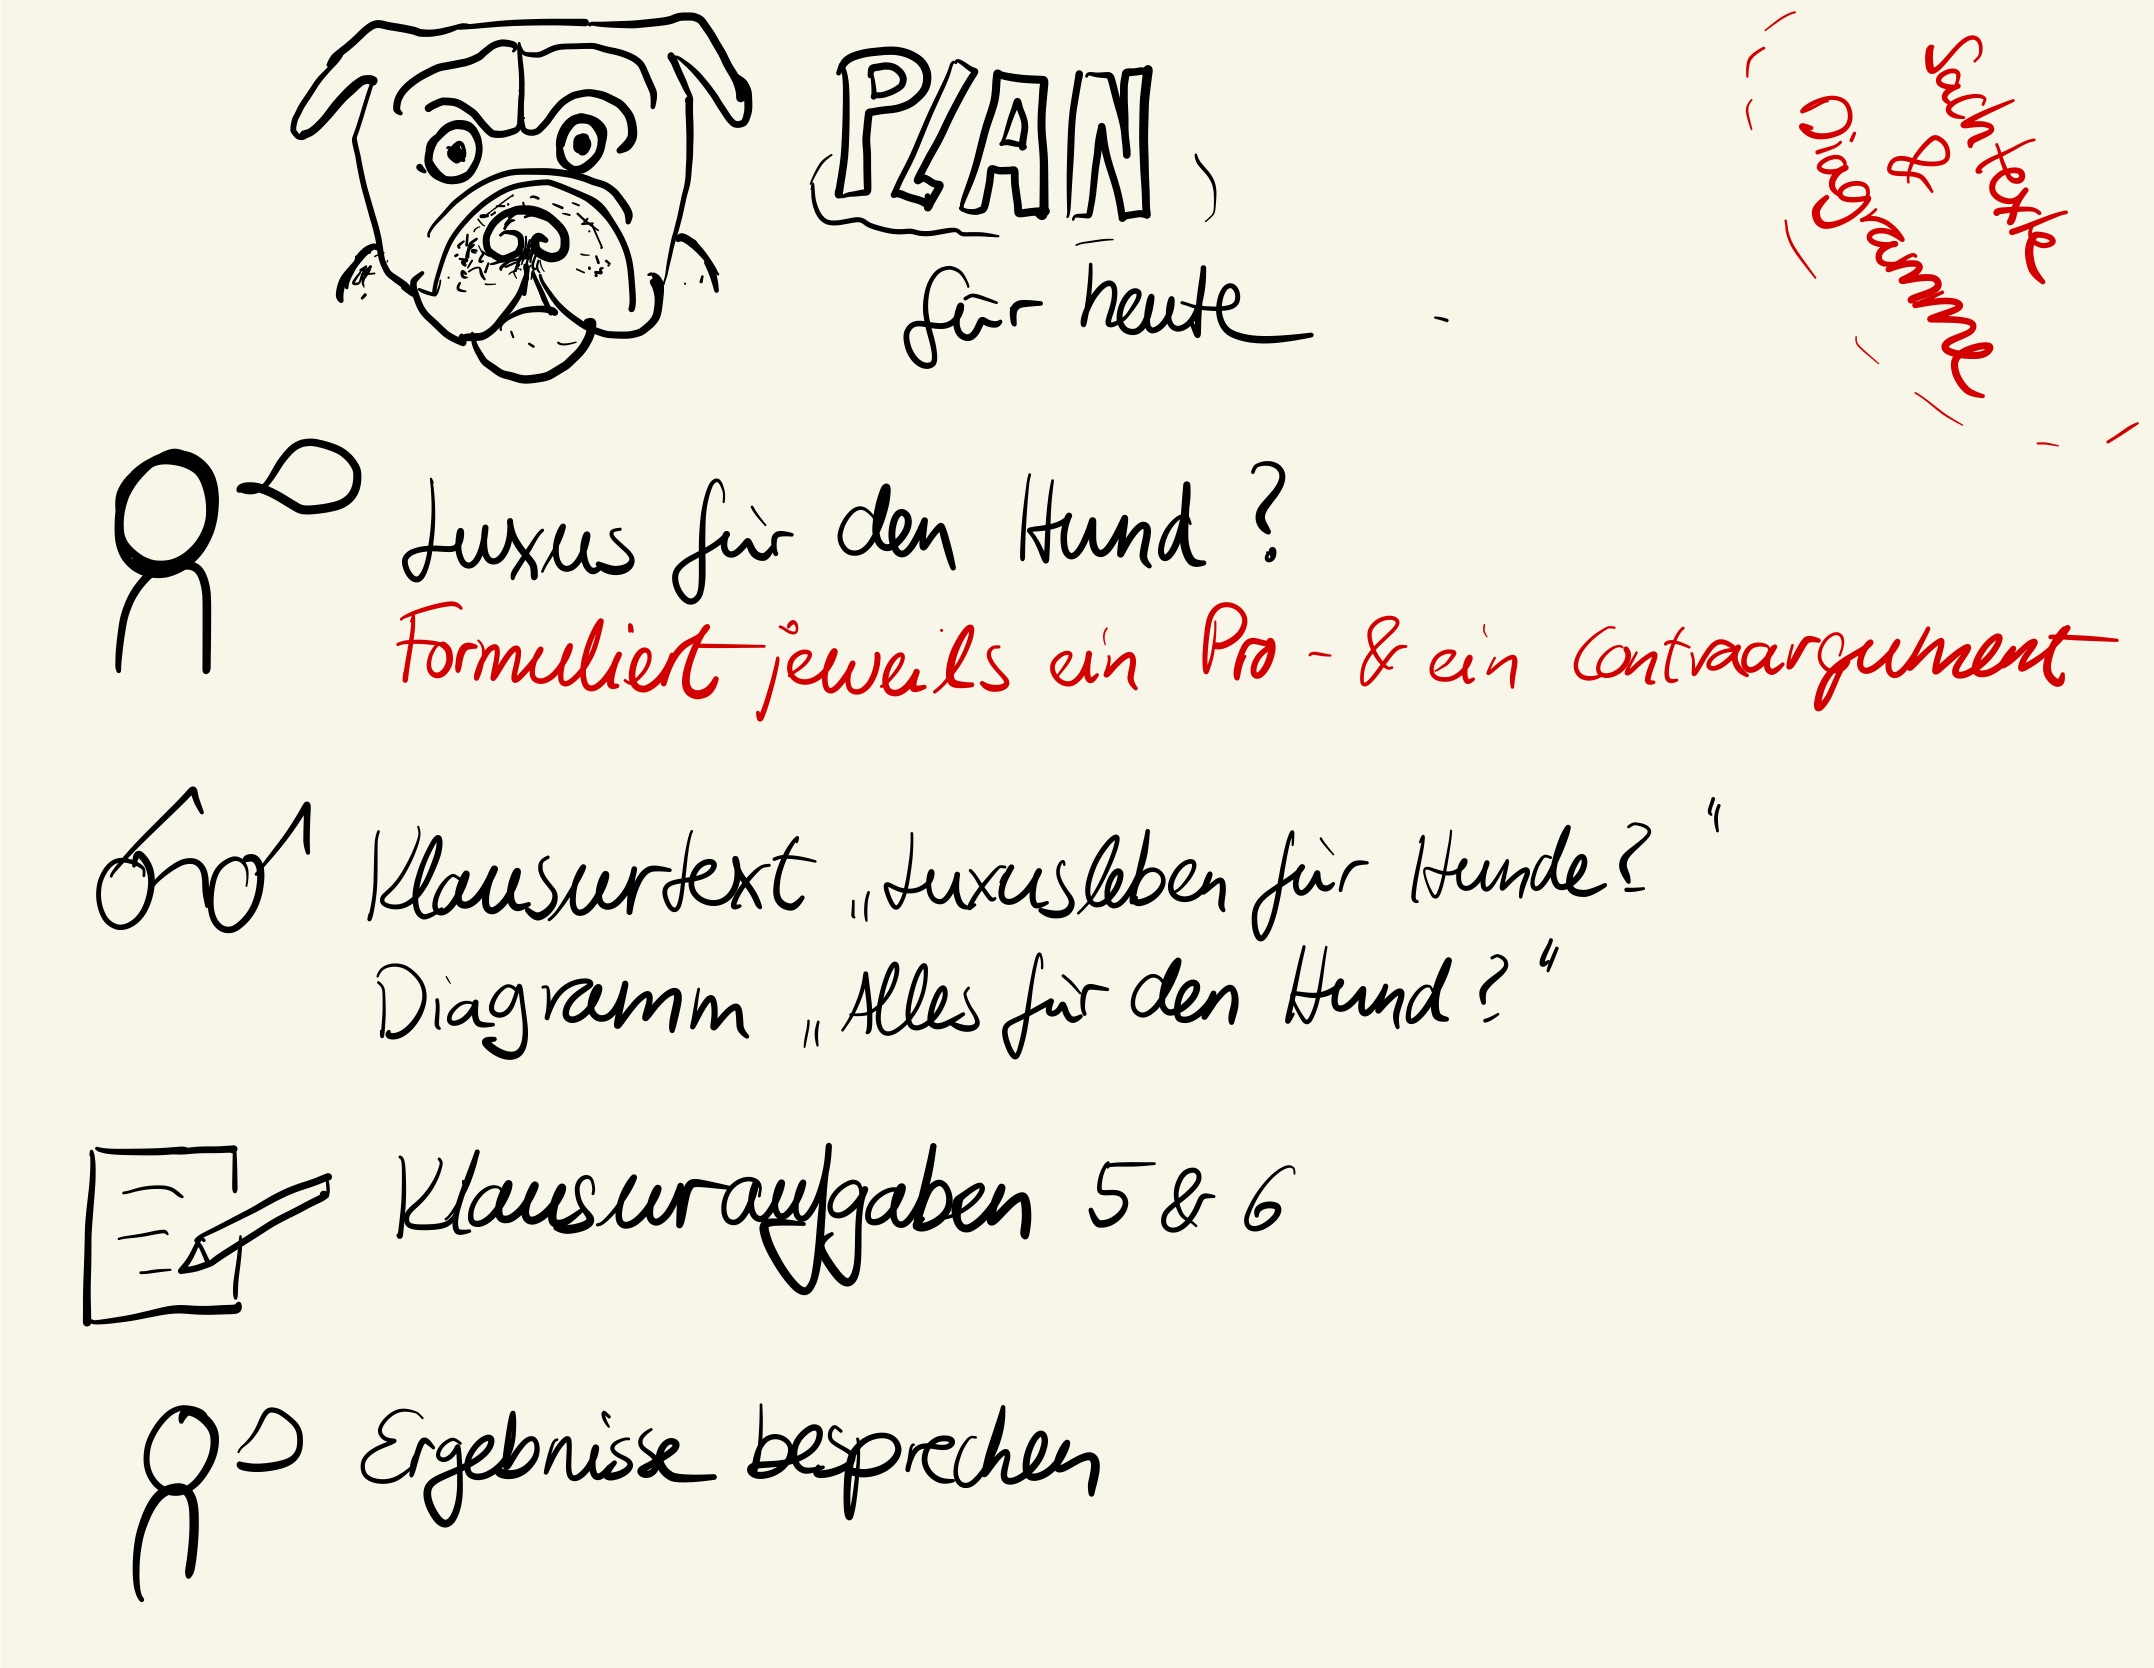 PLAN
für heute
Sachtexte
&
Diagramme
Luxus für den Hund?
Formuliert jeweils ein Pro- & ein Contraargument
Klausurtext „Luxusleben für Hunde?“
Diagramm „Alles für den Hund?“
Klausuraufgaben 5 & 6
Ergebnisse besprechen